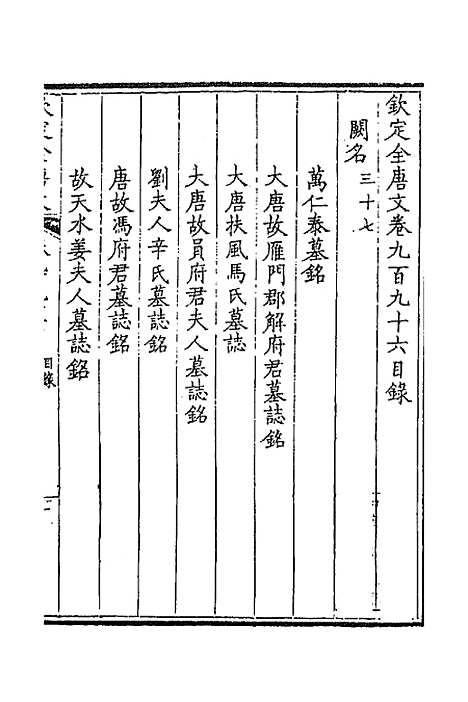 欽定全唐文卷九百九十六目錄
闕名三十七
萬仁泰墓銘
大唐故雁門郡解府君墓誌銘
大唐扶風馬氏墓誌
大唐故員府君夫人墓誌銘
劉夫人辛氏墓誌銘
唐故馮府君墓誌銘
故天水姜夫人墓誌銘
目錄